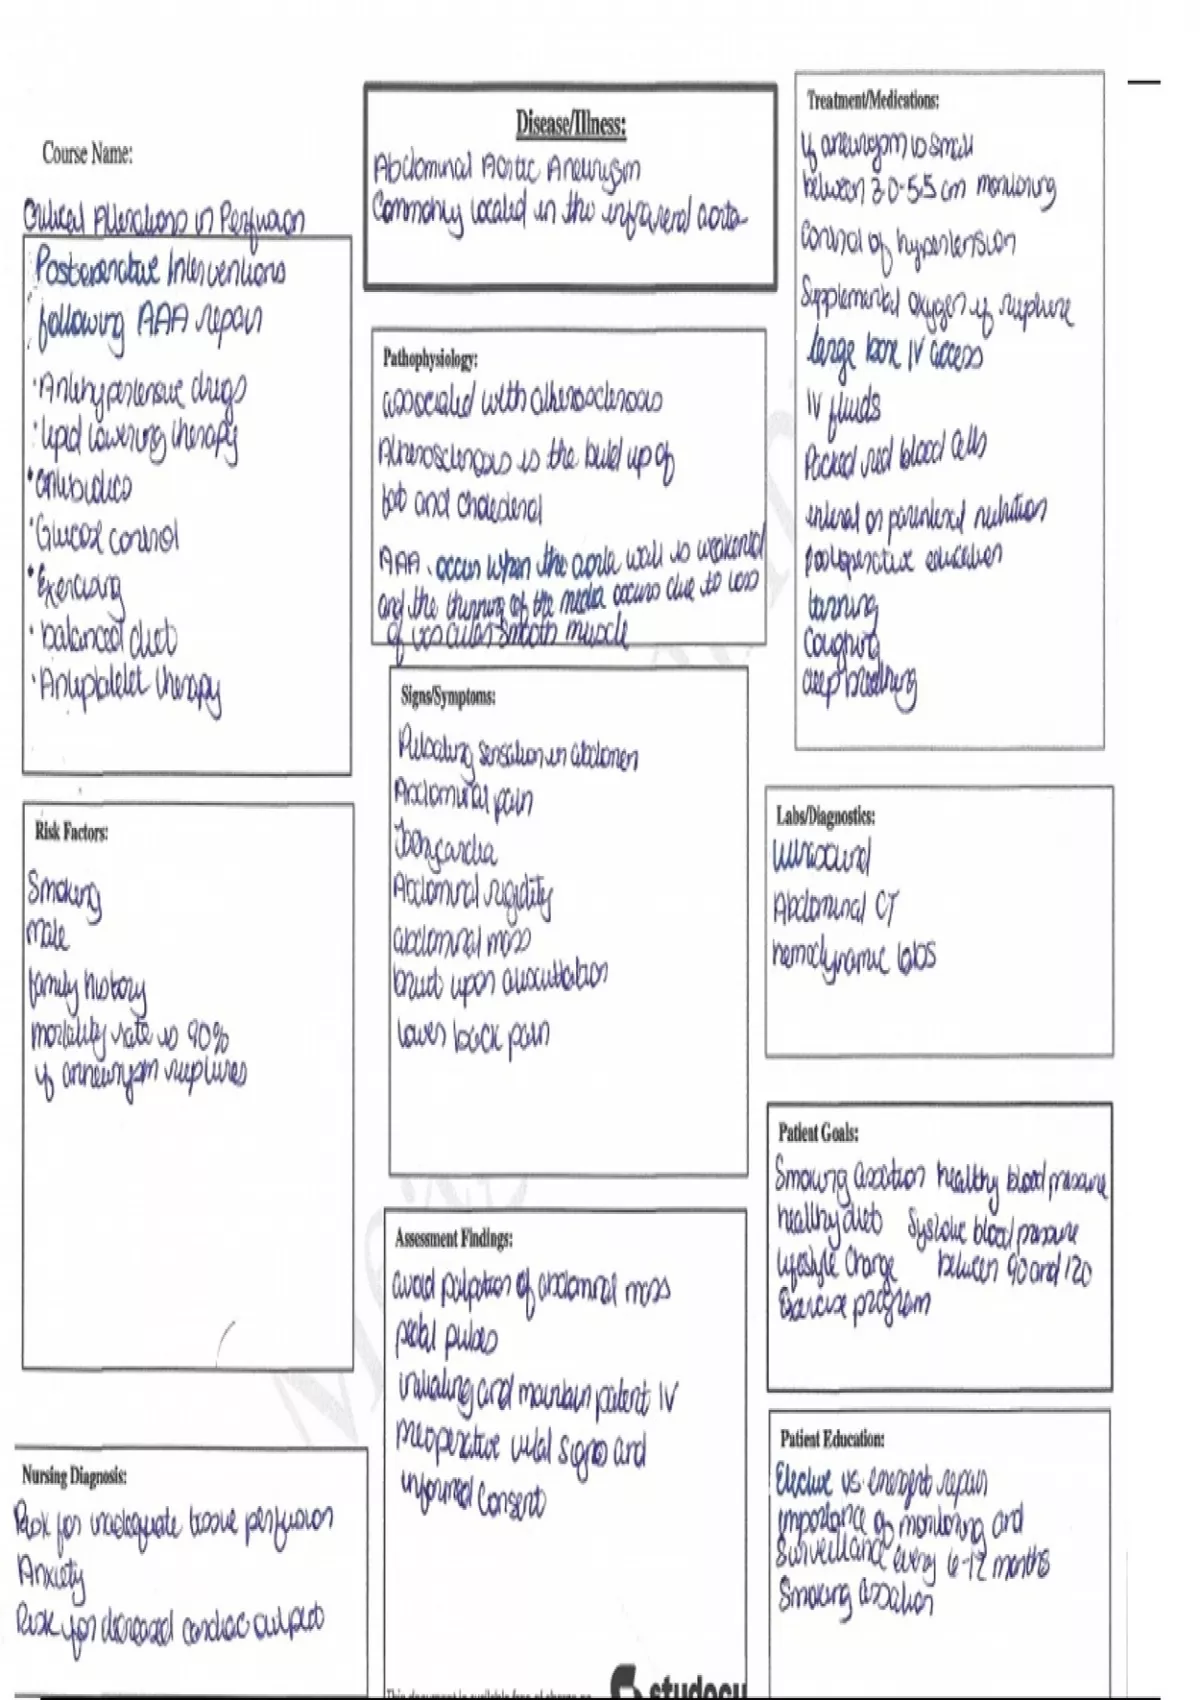 Course Name:
Critical Alterations in Perfusion
Postoperative Interventions
following AAA repair
·Antihypertensive drugs
·lipid lowering therapy
·antibiotics
·Glucose control
·Exercising
·balanced diet
·Antiplatelet therapy
Risk Factors:
Smoking
male
family history
mortality rate is 90%
if anneurysm ruptures
Nursing Diagnosis:
Risk for inadequate tissue perfusion
Anxiety
Risk for decreased cardiac output
Disease/Illness:
Abdominal Aortic Aneurysm
Commonly located in the infrarenal aorta
Pathophysiology:
associated with atherosclerosis
Atherosclerosis is the build up of
fat and cholesterol
AAA occurs when the aorta wall is weakened
and the thinning of the media occurs due to loss
of vascular smooth muscle
Signs/Symptoms:
Pulsating sensation in abdomen
Abdominal pain
Abdominal rigidity
abdominal mass
bruit upon auscultation
lower back pain
Assessment Findings:
avoid palpation of abdominal mass
pedal pulses
initiating and maintain patent IV
preoperative vital signs and
informed consent
Treatment/Medications:
if aneurysm is small
between 3.0-5.5 cm monitoring
control of hypertension
Supplemental oxygen if rupture
large bore IV access
IV fluids
Packed red blood cells
enteral or parenteral nutrition
postoperative education
turning
Coughing
deep breathing
Labs/Diagnostics:
Ultrasound
Abdominal CT
hemodynamic labs
Patient Goals:
Smoking cessation healthy blood pressure
healthy diet Systolic blood pressure
lifestyle change between 90 and 120
Exercise program
Patient Education:
Elective vs. emergent repair
importance of monitoring and
Surveillance every 6-12 months
Smoking cessation
This document is available free of charge on
studocu